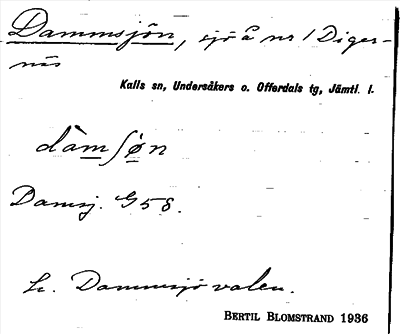 Dammsjön, sjö å nr 1 Diger-
näs
Kalls sn, Undersåkers o. Offerdals tg, Jämtl. l.
dàmʃøn
Damsj. G58.
Dammsjövalen.
BERTIL BLOMSTRAND 1936